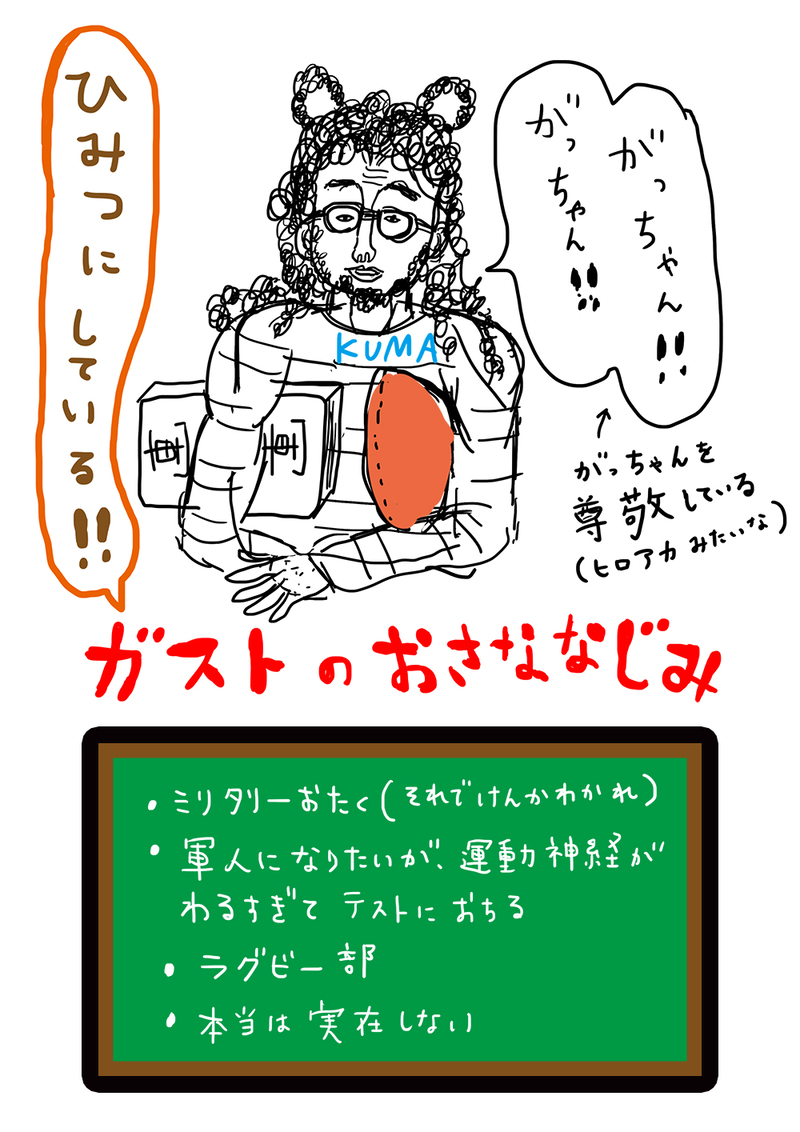 ひみつにしている!!
がっちゃん!!
がっちゃん!!
KUMA
↑
がっちゃんを
尊敬している
(ヒロアカ みたいな)
ガストのおさななじみ
・ミリタリーおたく(それでけんかわかれ)
・軍人になりたいが、運動神経が
わるすぎて テストに おちる
・ラグビー部
・本当は 実在しない